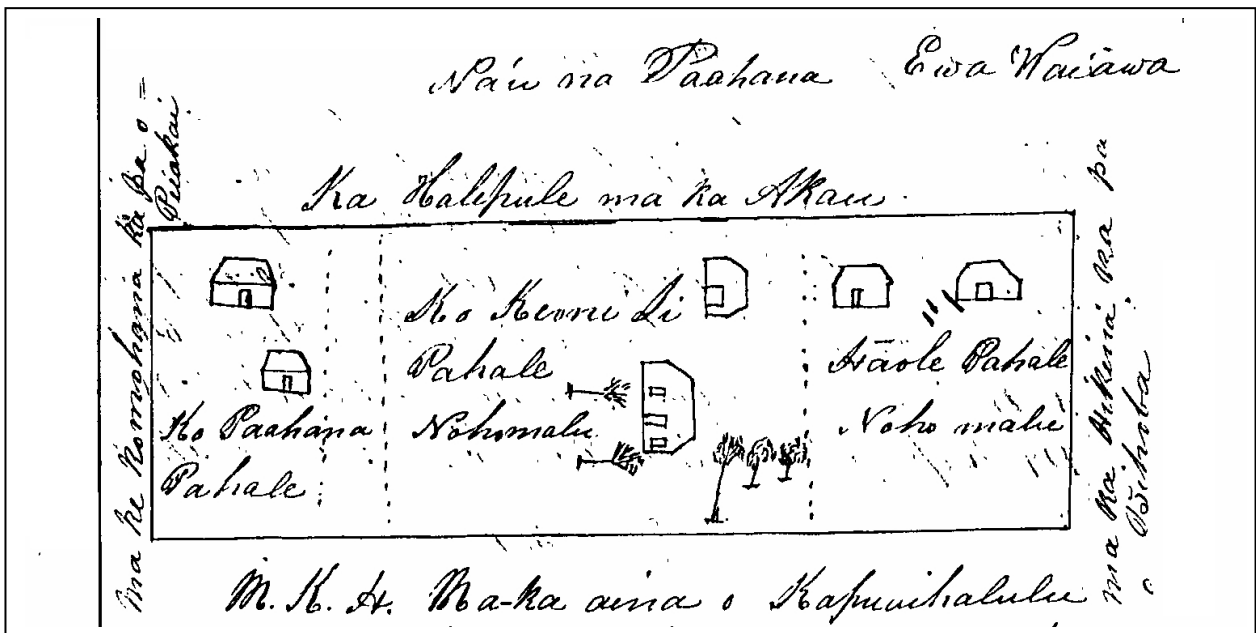 Na'u na Paahana Ewa Waiawa
Ka Halepule ma ka Akau.
ma ke komohana ka pa o =
Piiokai
Ko Paahana
Pahale
Ko Keoni Ii
Pahale
Nohomalu
Haole Pahale
Noho malu
ma ka Hikina ka pa
o
M. K. H. Ma-ka aina o Kapuoihalulu